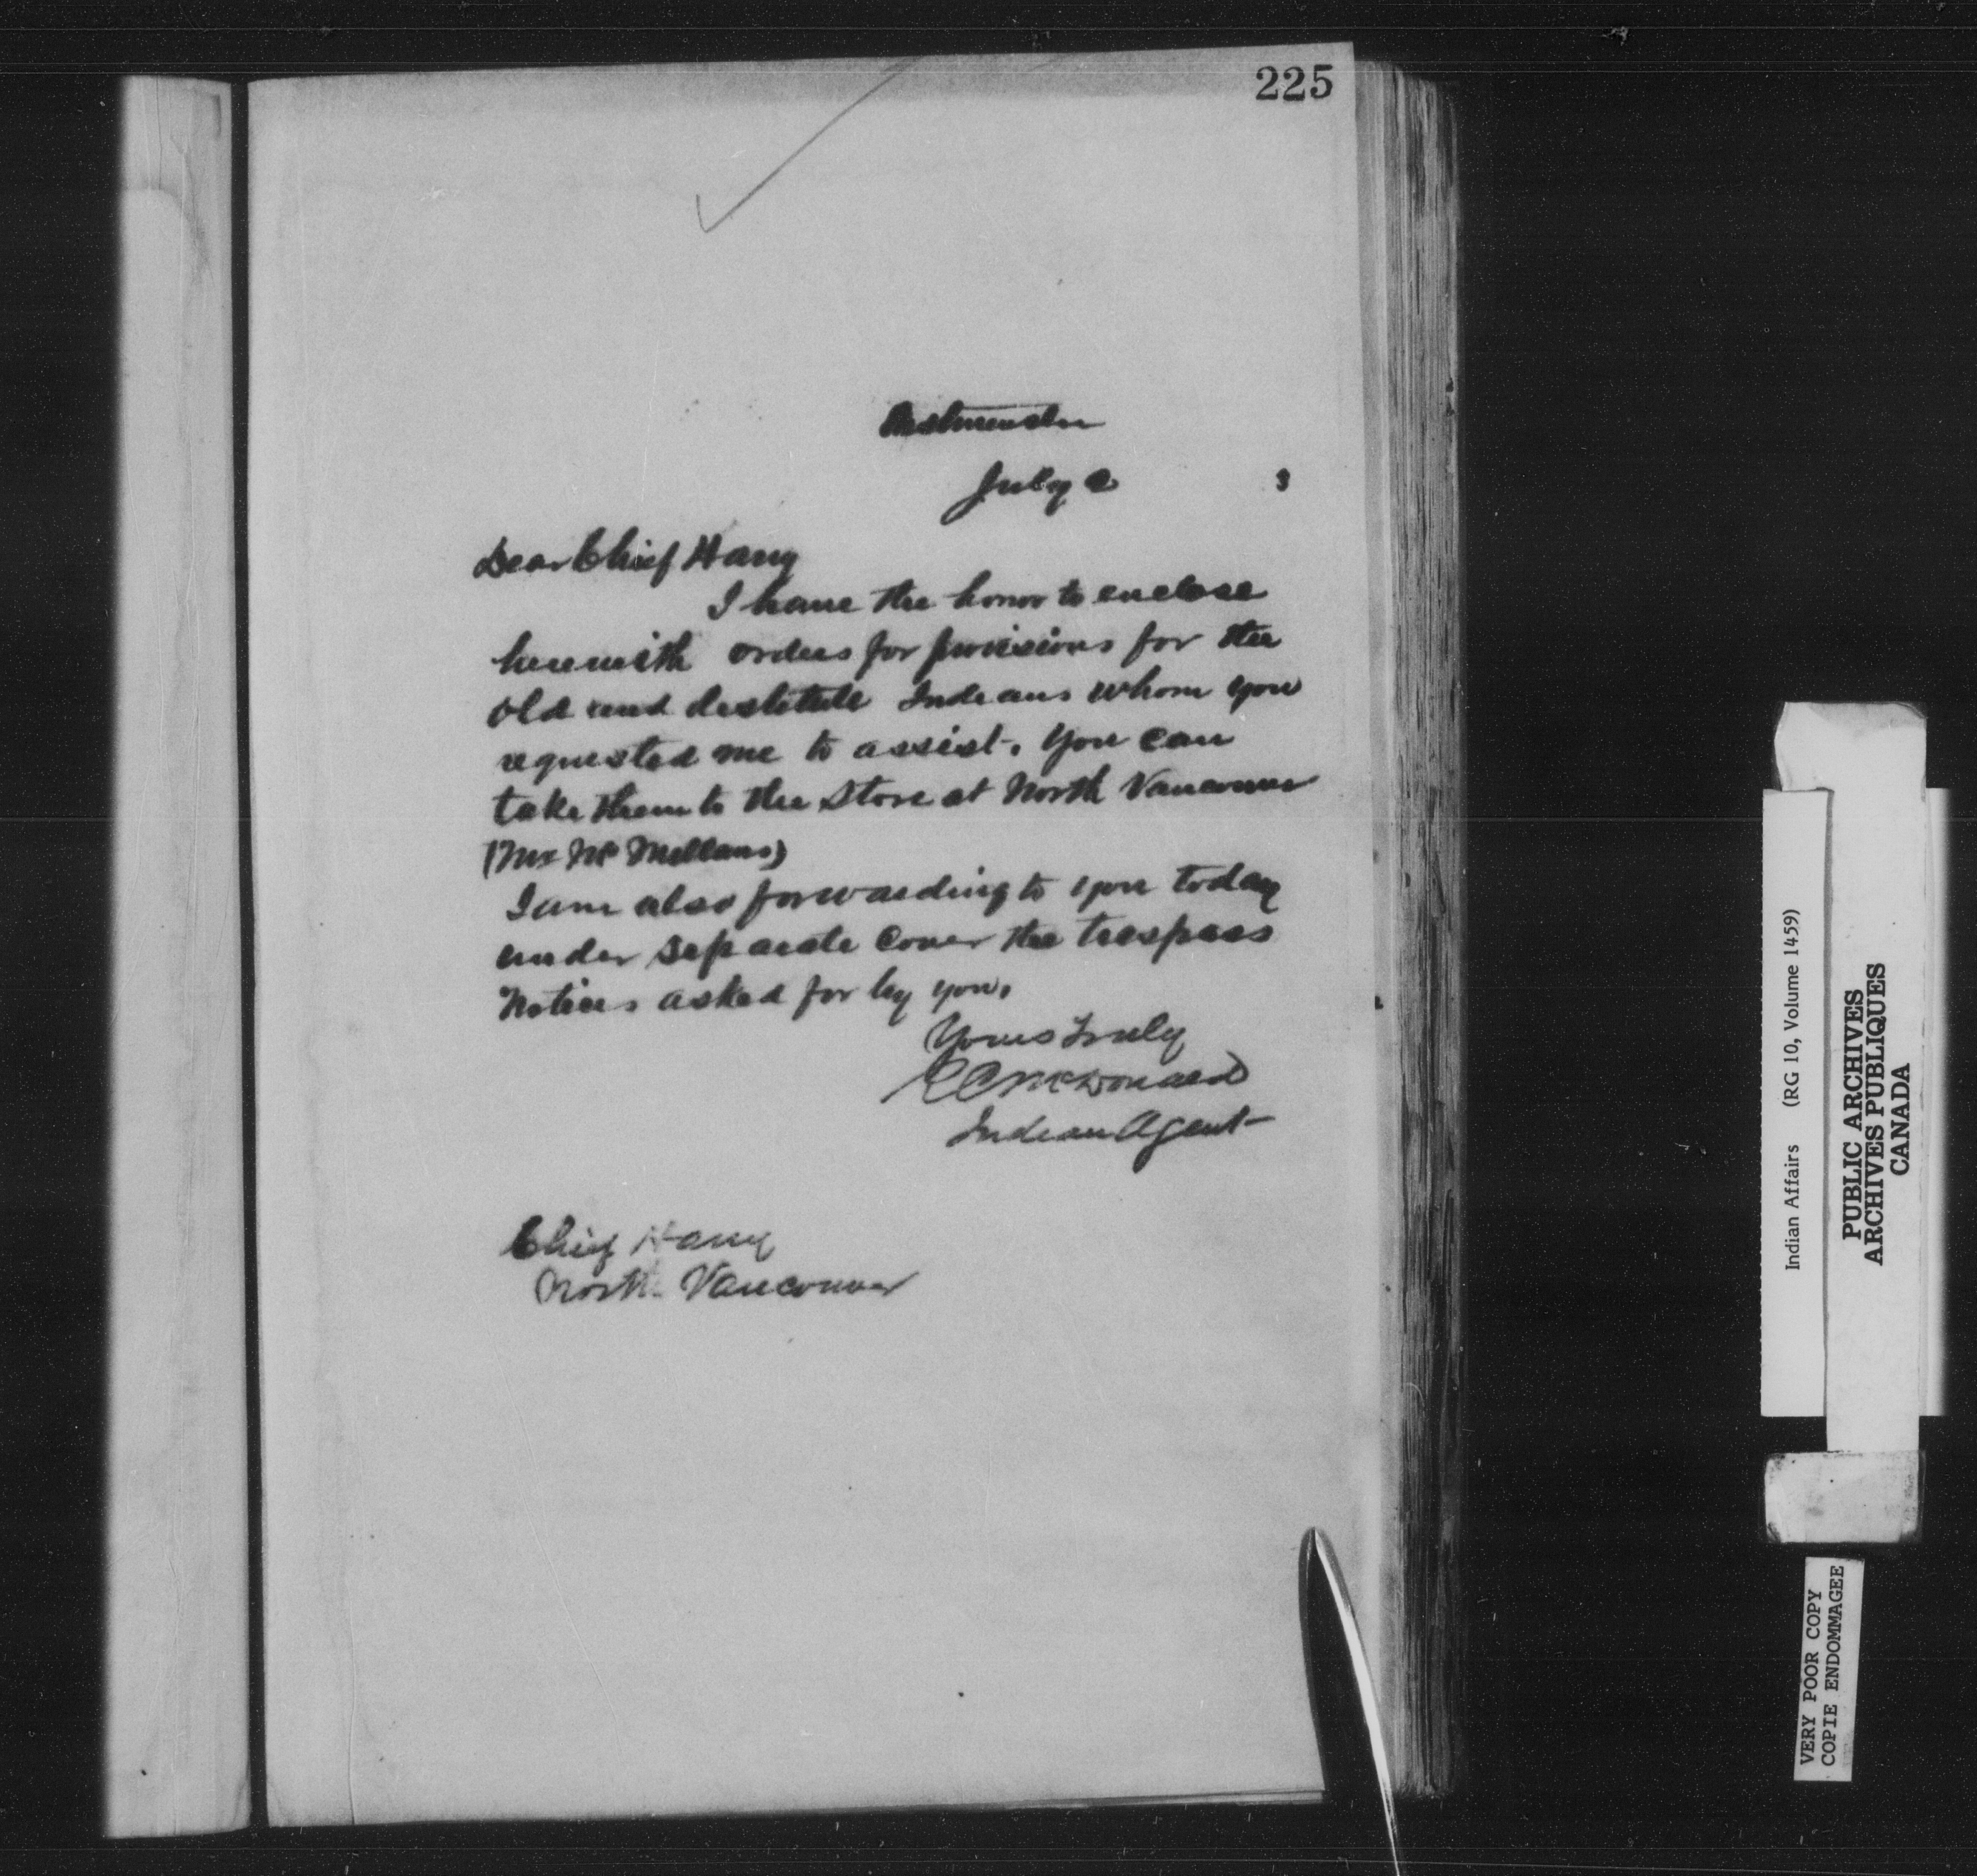 225
Westminster
July 2 3
Dear Chief Harry
I have the honor to enclose
herewith orders for provisions for the
old and destitute Indians whom you
requested me to assist. You can
take them to the Store at North Vancouver
(Mr Mc Millans)
I am also forwarding to you today
under separate cover the trespass
Notices asked for by you.
Yours Truly
McDonald
Indian Agent
Chief Harry
North Vancouver
Indian Affairs (RG 10, Volume 1459)
PUBLIC ARCHIVES
ARCHIVES PUBLIQUES
CANADA
VERY POOR COPY
COPIE ENDOMMAGEE